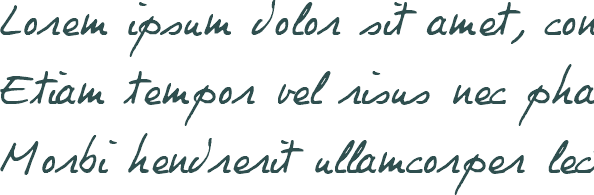 Lorem ipsum dolor sit amet, con
Etiam tempor vel risus nec pha
Morbi hendrerit ullamcorper lec